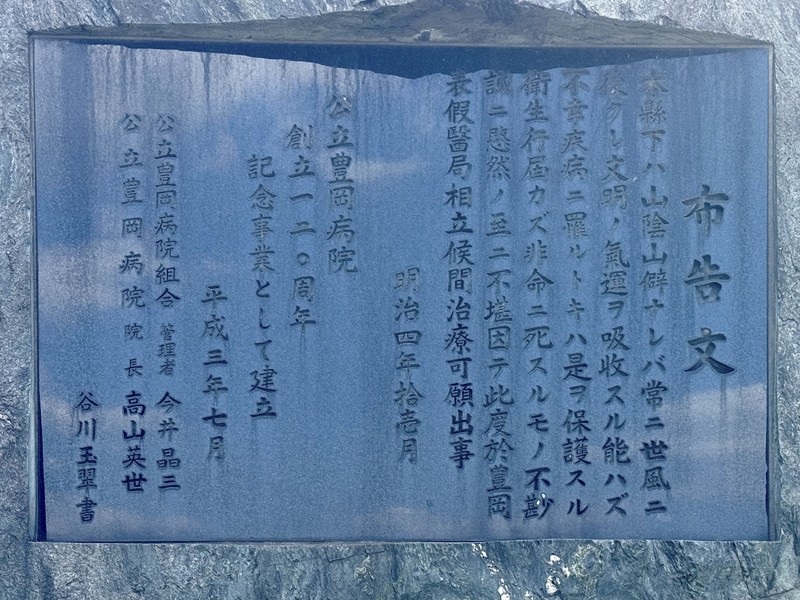 布告文
本縣下ハ山陰山僻ナレバ常ニ世風ニ
後クレ文明ノ氣運ヲ吸收スル能ハズ
不幸疾病ニ罹ルトキハ是ヲ保護スル
衛生行屆カズ非命ニ死スルモノ不尠
誠ニ愍然ノ至ニ不堪因テ此度於豊岡
表假醫局相立候間治療可願出事
明治四年拾壱月
公立豊岡病院
創立一二〇周年
記念事業として建立
平成三年七月
公立豊岡病院組合 管理者 今井晶三
公立豊岡病院 院長 高山英世
谷川玉翠書